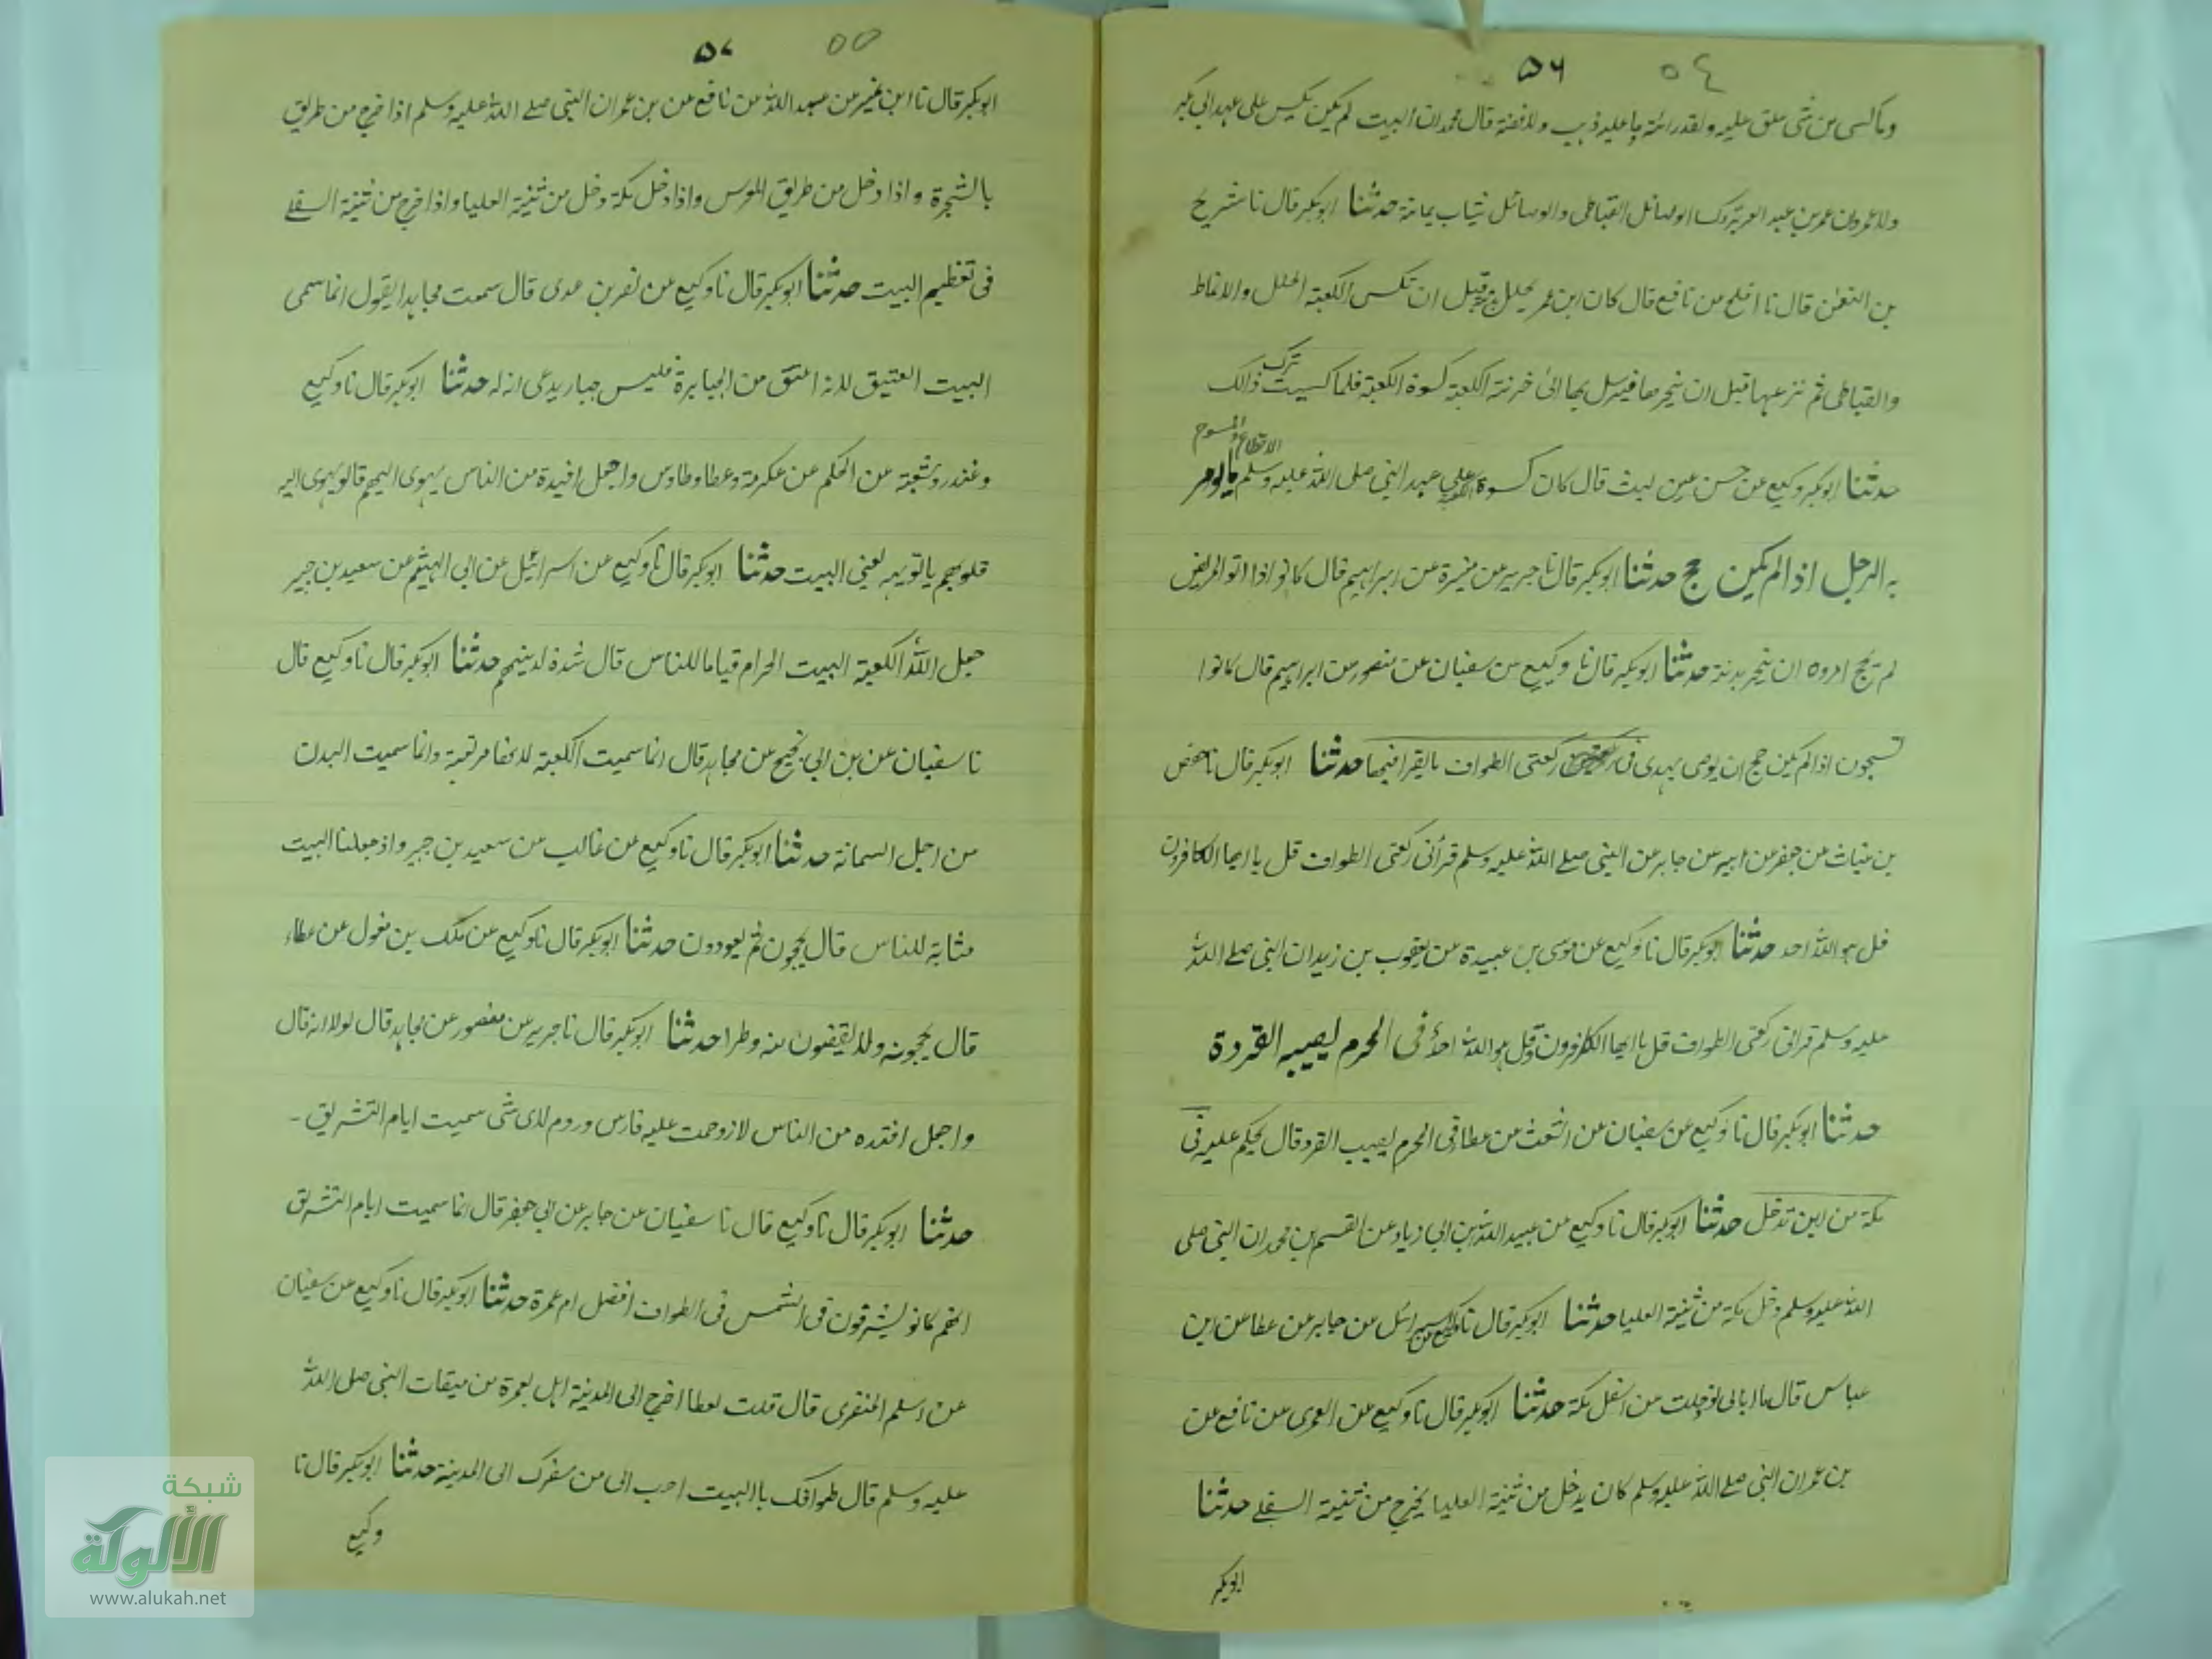 ٥٦ ٥٤
وما كسى من شى علق عليه ولقد رائته وما عليه ذهب ولا فضة قال محمد ان البيت لم يكن يكسى على عهد ابى بكر
ولا عمر وان عمر بن عبد العزيز كسا الوصائل القباطى والوصائل ثياب يمانة حدثنا ابو بكر قال نا شريح
بن النعمن قال نا افلح من نافع قال كان ابن عمر يجلل بدنه قبل ان تكسى الكعبة الحلل والانماط
والقباطى ثم نزعها قبل ان ينحرها فيرسل بها الىٰ خزنة الكعبة كسوة الكعبة فلما كسيت ترك ذالك
الاقطاع والمسوح
حدثنا ابو بكر وكيع عن حسن عن ليث قال كان كسوة الكعبة على عهد النبى صلى الله عليه وسلم ما يومر
به الرجل اذا لم يكن حج حدثنا ابو بكر قال نا جرير عن مغيرة عن ابراهيم قال كانوا اذا اتوا المريض
لم يحج امروه ان ينحر بدنة حدثنا ابو بكر قال نا وكيع من سفيان عن منصور من ابراهيم قال كانوا
تسحبون اذا لم يكن حج ان يوصى بهدى فى ركعتى الطواف ما يقرا فيهما حدثنا ابو بكر قال نا حفص
بن غياث من جعفر من ابيه عن جابر عن النبى صلے الله عليه وسلم قرا فى ركعتى الطواف قل يا ايها الكافرون
قل هو الله احد حدثنا ابو بكر قال نا وكيع عن موسى بن عبيدة من يعقوب بن زيد ان النبى صلے الله
عليه وسلم قرا فى ركعتى الطواف قل يا ايها الكافرون وقل هو الله احد فى المحرم يصيب القردة
حدثنا ابو بكر قال نا وكيع عن سفيان عن اشعث من عطا فى المحرم يصيب القرد قال يحكم عليه فى
مكة من اين تدخل حدثنا ابو بكر قال نا وكيع من عبيد الله بن ابى زياد عن القسم بن محمد ان النبى صلى
الله عليه وسلم دخل مكة من ثنية العليا حدثنا ابو بكر قال نا وكيع عن اسرائل من جابر من عطا عن ابن
عباس قال ما ابالى لو دخلت من اسفل مكة حدثنا ابو بكر قال نا وكيع عن العمرى من نافع عن
بن عمر ان النبى صلے الله عليه وسلم كان يدخل من ثنية العليا يخرج من ثنية السفلے حدثنا
ابو بكر
٥٧ ٥٥
ابو بكر قال نا ابن نمير من عبيد الله من نافع عن بن عمر ان النبى صلے الله عليه وسلم اذا خرج من طريق
بالشجرة واذا دخل من طريق المعرس واذا دخل مكة دخل من ثنية العليا واذا خرج من ثنية السفلے
فى تعظيم البيت حدثنا ابو بكر قال نا وكيع عن نضر بن عدى قال سمعت مجاهدا يقول انما سمى
البيت العتيق لانه اعتق من الجبابرة فليس جبار يدعى انه له حدثنا ابو بكر قال نا وكيع
وغندر و شعبة عن الحكم عن عكرمة وعطا وطاوس واجعل افيدة من الناس يهوى اليهم قالو يهوى اليه
قلوبهم ياتوبه يعنى البيت حدثنا ابو بكر قال نا وكيع عن اسرائيل عن ابى الهيثم عن سعيد بن جبير
جعل الله الكعبة البيت الحرام قياما للناس قال شدة لدينهم حدثنا ابو بكر قال نا وكيع قال
نا سفيان عن بن ابى نجيح عن مجاهد قال انما سميت الكعبة لانها مربعة وانما سميت البدن
من اجل السمانة حدثنا ابو بكر قال نا وكيع من غالب من سعيد بن جبير واذ جعلنا البيت
مثابة للناس قال يحجون ثم يعودون حدثنا ابو بكر قال نا وكيع عن ملك بن مغول عن عطاء
قال يحجونه ولا يقضون منه وطرا حدثنا ابو بكر قال نا جرير عن منصور عن مجاهد قال لولا انه قال
واجعل افئده من الناس لازدحمت عليه فارس وروم لاى شى سميت ايام التشريق -
حدثنا ابو بكر قال نا وكيع قال نا سفيان عن جابر عن ابى جعفر قال انما سميت ايام التشريق
انهم كانو يشرقون فى الشمس فى الطواف افضل ام عمرة حدثنا ابو بكر قال نا وكيع عن سفيان
عن اسلم المنقرى قال قلت لعطا اخرج الى المدينة اهل بعمرة من ميقات النبى صلى الله
عليه وسلم قال طوافك با البيت احب الى من سفرك الى المدينة حدثنا ابو بكر قال نا
وكيع
شبكة
الألوكة
www.alukah.net